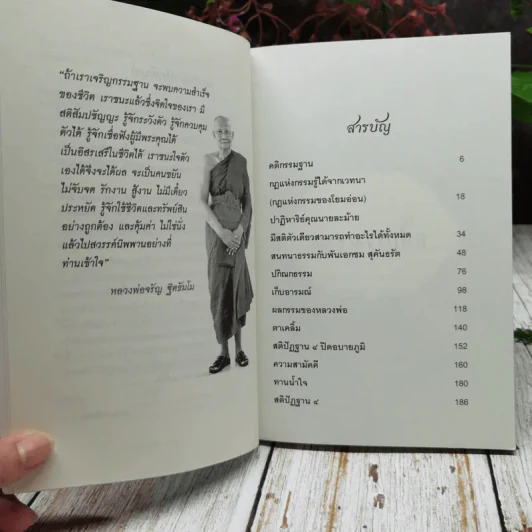 "ถ้าเราเจริญกรรมฐาน จะพบความสำเร็จ
ของชีวิต เราชนะแล้วซึ่งจิตใจของเรา มี
สติสัมปชัญญะ รู้จักระวังตัว รู้จักควบคุม
ตัวได้ รู้จักเชื่อฟังผู้มีพระคุณได้
เป็นอิสรเสรีในชีวิตได้ เราชนะใจตัว
เองได้จึงจะได้ผล จะเป็นคนขยัน
ไม่จับจด รักงาน สู้งาน ไม่มีเดี๋ยว
ประหยัด รู้จักใช้ชีวิตและทรัพย์สิน
อย่างถูกต้อง และคุ้มค่า ไม่ใช่นั่ง
แล้วไปสวรรค์นิพพานอย่างที่
ท่านเข้าใจ"
หลวงพ่อจรัญ ฐิตธัมโม
สารบัญ
คติกรรมฐาน 6
กฎแห่งกรรมรู้ได้จากเวทนา
(กฎแห่งกรรมของโยมอ่อน) 18
ปาฏิหาริย์คุณนายละม้าย
มีสติตัวเดียวสามารถทำอะไรได้ทั้งหมด 34
สนทนาธรรมกับพันเอกชม สุคันธรัต 48
ปกิณกธรรม 76
เก็บอารมณ์ 98
ผลกรรมของหลวงพ่อ 118
ตาเคลิ้ม 140
สติปัฏฐาน ๔ ปิดอบายภูมิ 152
ความสามัคคี 160
ทานน้ำใจ 180
สติปัฏฐาน ๔ 186